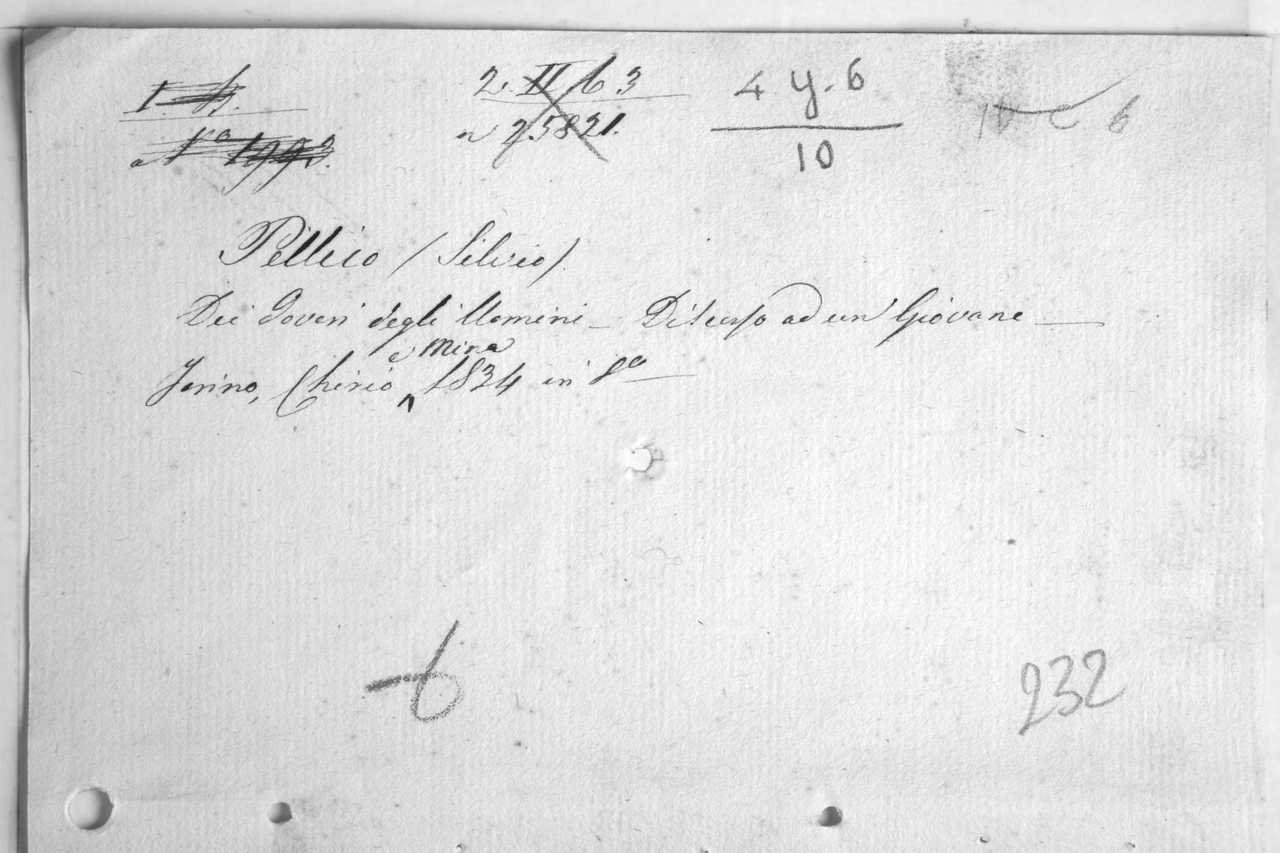 2. II b 3
a 25821.
4 y. 6
10
10 c 6
Pellico (Silvio)
Dei Doveri degli Uomini — Discorso ad un Giovane —
e Mina
Torino, Chirio ^ 1834 in 8º —
6
232